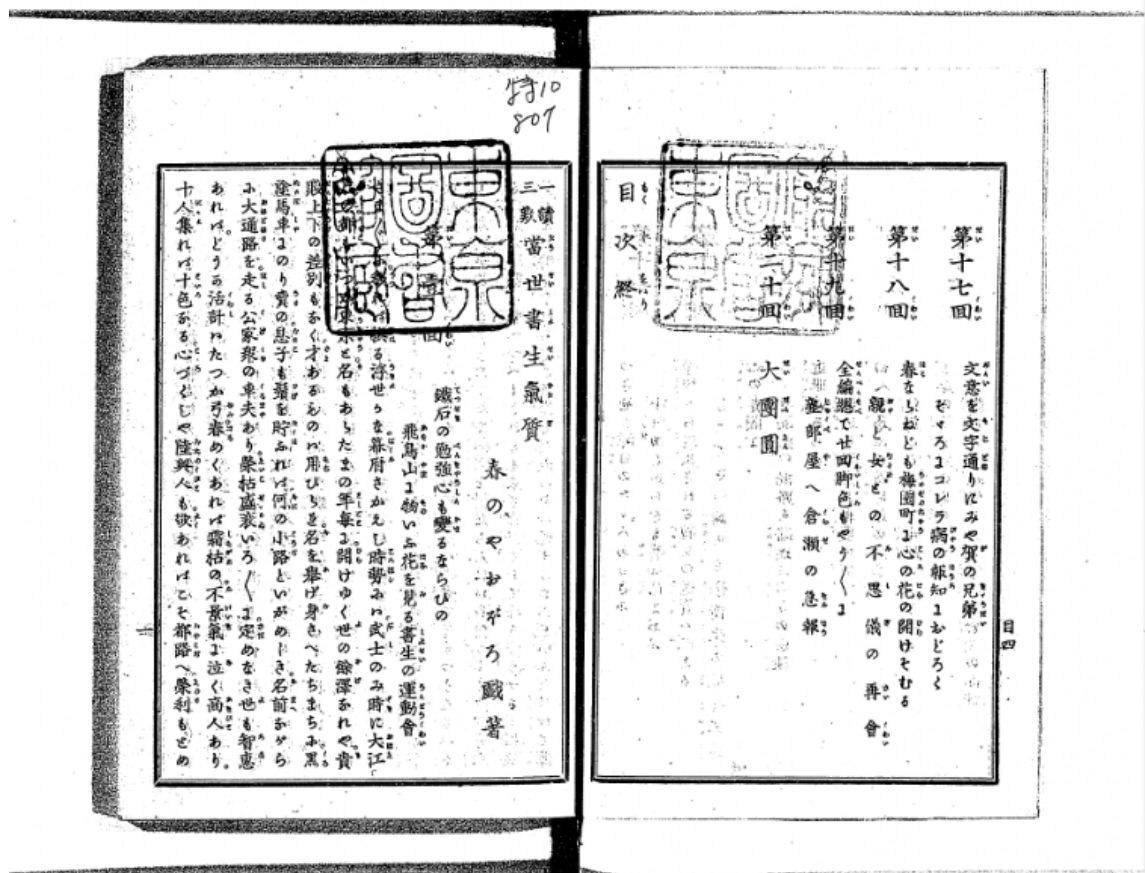 目四
第十七回
文意を文字通りにみや賀の兄弟
そゞろにコレラ病の報知におどろく
第十八回
春ならねども梅園町に心の花の開けそむる
親と女との不思儀の再會
第十九回
全編總て廿回脚色もやう〳〵に
塾部屋へ倉瀬の急報
第二十回
大團圓
目次終
特10
807
東京圖書館藏
一讀三歎當世書生氣質
春のやおぼろ戯著
第 回
鐵石の勉強心も變るならひの
飛鳥山に物いふ花を見る書生の運動會
換る浮世かな幕府さかえし時勢には武士のみ時に大江
の都も 東京と名もあらたまの年毎に開けゆく世の餘澤なれや貴
賤上下の差別もなく才あるものは用ひられ名を舉げ身さへたちまちに黒
塗馬車にのり賣の息子も鬚を貯ふれば何の小路といかめしき名前ながら
に大通路を走る公家衆の車夫あり榮枯盛衰いろ〳〵に定めなき世も智惠
あればどうか活計はたつか弓春めくあれば霜枯の不景氣に泣く商人あり
十人集れば十色なる心づくしや陸奥人も欲あればこそ都路へ榮利もとめ
一